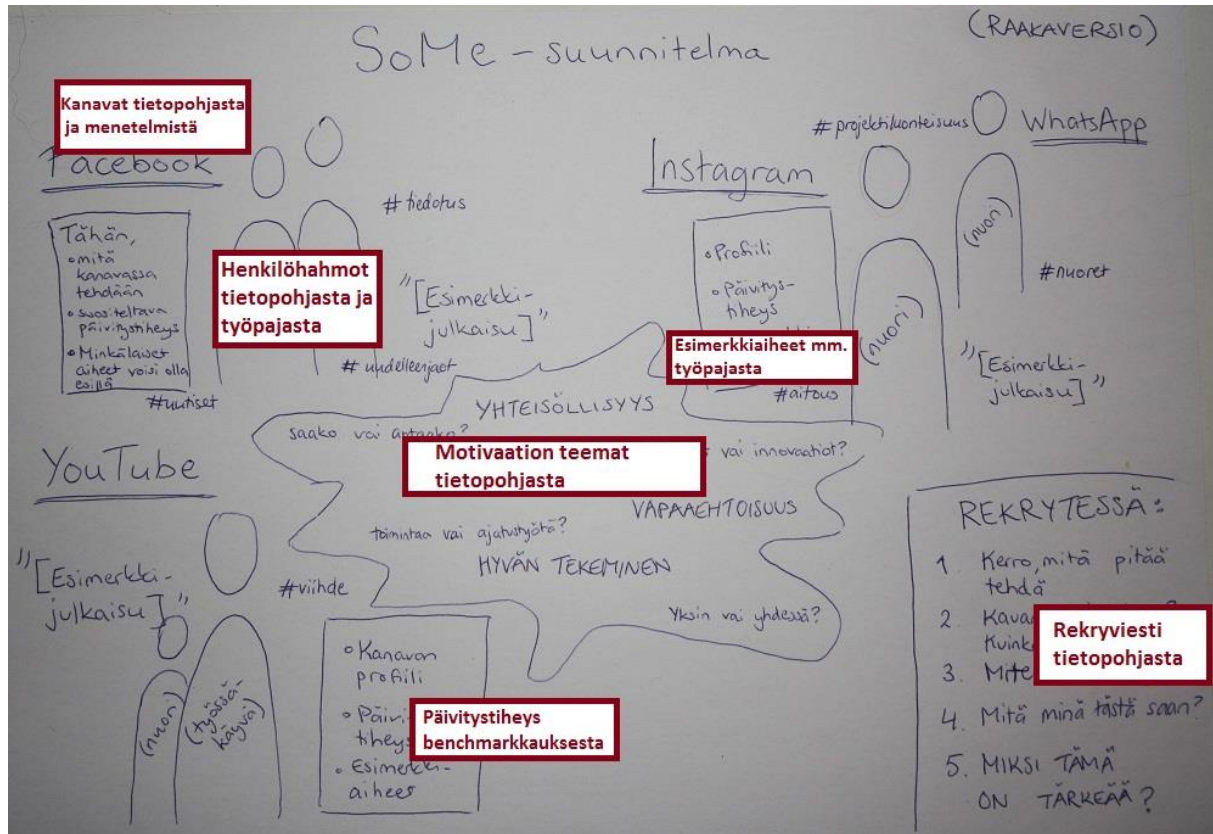 SoMe - suunnitelma
(RAAKAVERSIO)
Kanavat tietopohjasta
ja menetelmistä
Facebook
#tiedotus
Tähän,
• mitä
kanavassa
tehdään
• suositeltava
päivitystiheys
• Minkälaiset
aiheet voisi olla
esillä
#uutiset
Henkilöhahmot
tietopohjasta ja
työpajasta
"[Esimerkki-
julkaisu]"
#uudelleenjaot
Instagram
#projektiluonteisuus
WhatsApp
• Profiili
• Päivitys-
tiheys
Esimerkkiaiheet mm.
työpajasta
#aitous
(nuori)
(nuori)
#nuoret
"[Esimerkki-
julkaisu]"
YHTEISÖLLISYYS
saako vai antaako?
vai innovaatiot?
Motivaation teemat
tietopohjasta
VAPAAEHTOISUUS
toimintaa vai ajatustyötä?
HYVÄN TEKEMINEN
Yksin vai yhdessä?
YouTube
"[Esimerkki-
julkaisu]"
#viihde
(nuori)
(työssä-
käyvä)
• Kanavan
profiili
• Päivi
tiheys
• Esimerkki-
aiheet
Päivitystiheys
benchmarkkauksesta
REKRYTESSÄ:
1. Kerro, mitä pitää
tehdä
2.
3.
Rekryviesti
tietopohjasta
4. Mitä minä tästä saan?
5. MIKSI TÄMÄ
ON TÄRKEÄÄ?